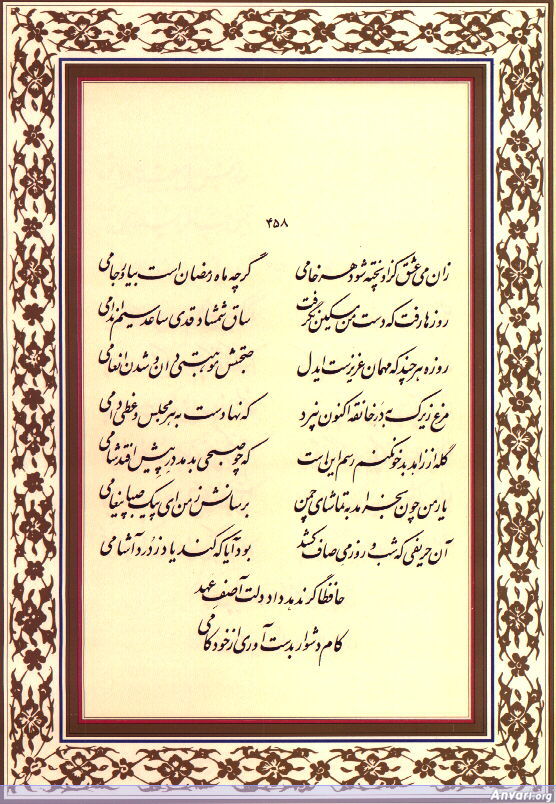 ۴۵۸
زان می عشق کزاو پخته شود هر خامی گرچه ماه رمضان است بیاور جامی
روزها رفت که دست من مسکین نگرفت ساق شمشاد قدی ساعد سیم اندامی
روزه هر چند که مهمان عزیزست ایدل صحبتش موهبتی دان و شدن انعامی
مرغ زیرک به در خانقه اکنون نپرد که نهادست به هر مجلس وعظی دامی
گله از زاهد بدخو نکنم رسم این است که چو صبحی بدمد در پیش افتد شامی
یار من چون بخرامد به تماشای چمن برسانش ز من ای پیک صبا پیغامی
آن حریفی که شب و روز می صاف کشد بود آیا که کند یاد ز درد آشامی
حافظا گر ندهد داد دلت آصف عهد
کام دشوار بدست آوری از خودکامی
Anvari.org